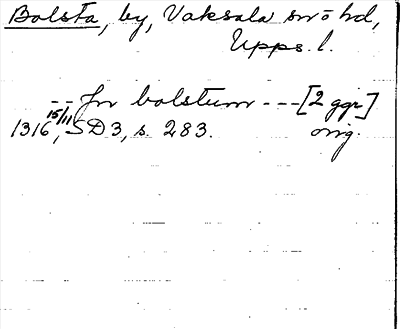 Bolsta, by, Vaksala snö hd,
Upps. l.
-- Jn bolstum --- [2 ggr]
1316 15/11, SD 3, s. 283. orig.